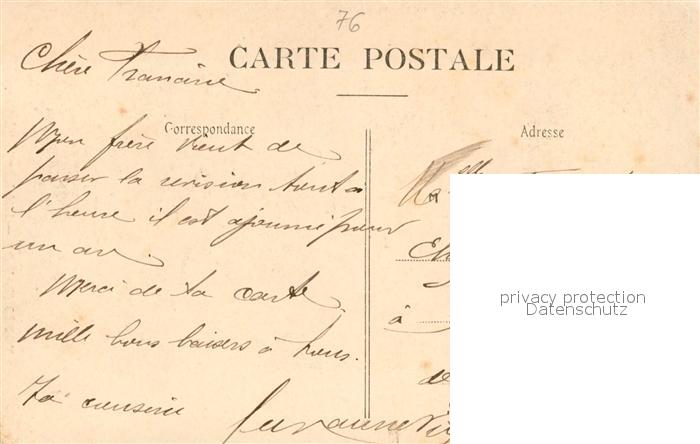 76
Chère Francine
CARTE POSTALE
Correspondance
Adresse
Mon frère vient de
passer la révision tout à
l'heure il est ajourné pour
un an.
Merci de ta carte
mille bons baisers à tous.
Ta cousine
M
à
de
privacy protection
Datenschutz